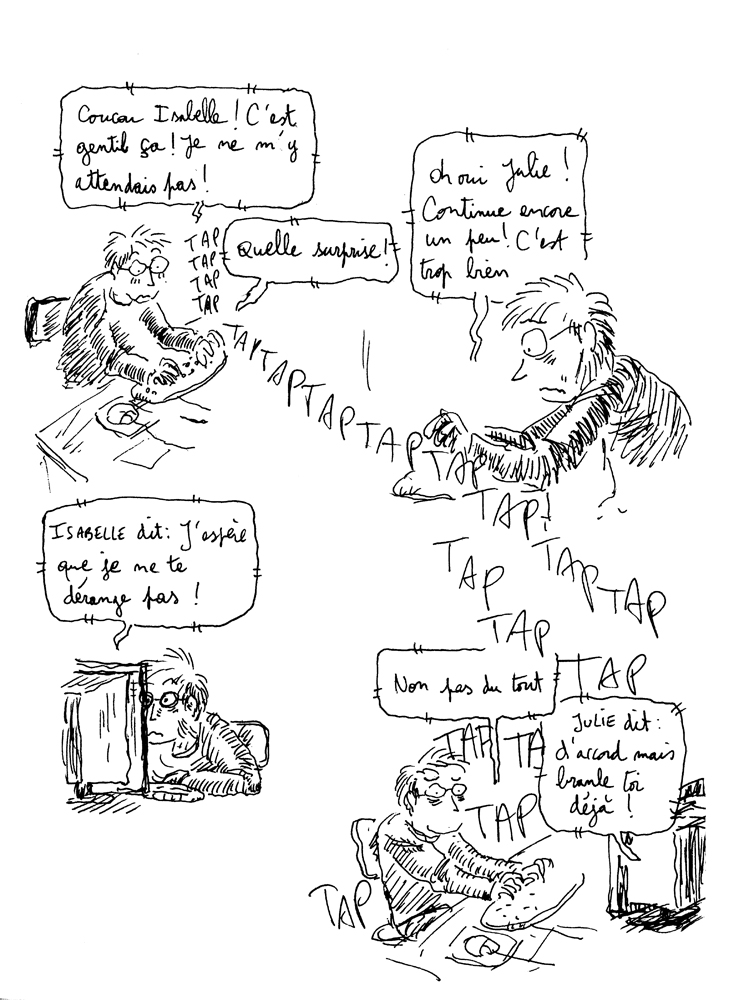 Coucou Isabelle ! C'est
gentil ça ! Je ne m'y
attendais pas !
TAP
TAP
TAP
TAP
Quelle surprise !
oh oui Julie !
Continue encore
un peu ! C'est
trop bien
TAP
TAP
TAP
TAP
TAP
TAP
TAP
TAP
TAP
TAP
ISABELLE dit : J'espère
que je ne te
dérange pas !
TAP
TAP
Non pas du tout
TAP
TA
JULIE dit :
d'accord mais
branle toi
déjà !
TAP
TAP